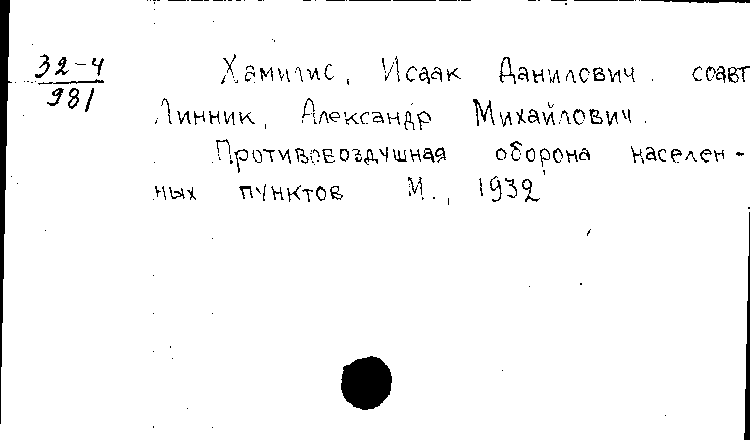 32-4
981
Хамигис, Исаак Данилович. соавт
Линник, Александр Михайлович.
Противовоздушная оборона населен-
ных пунктов М., 1932